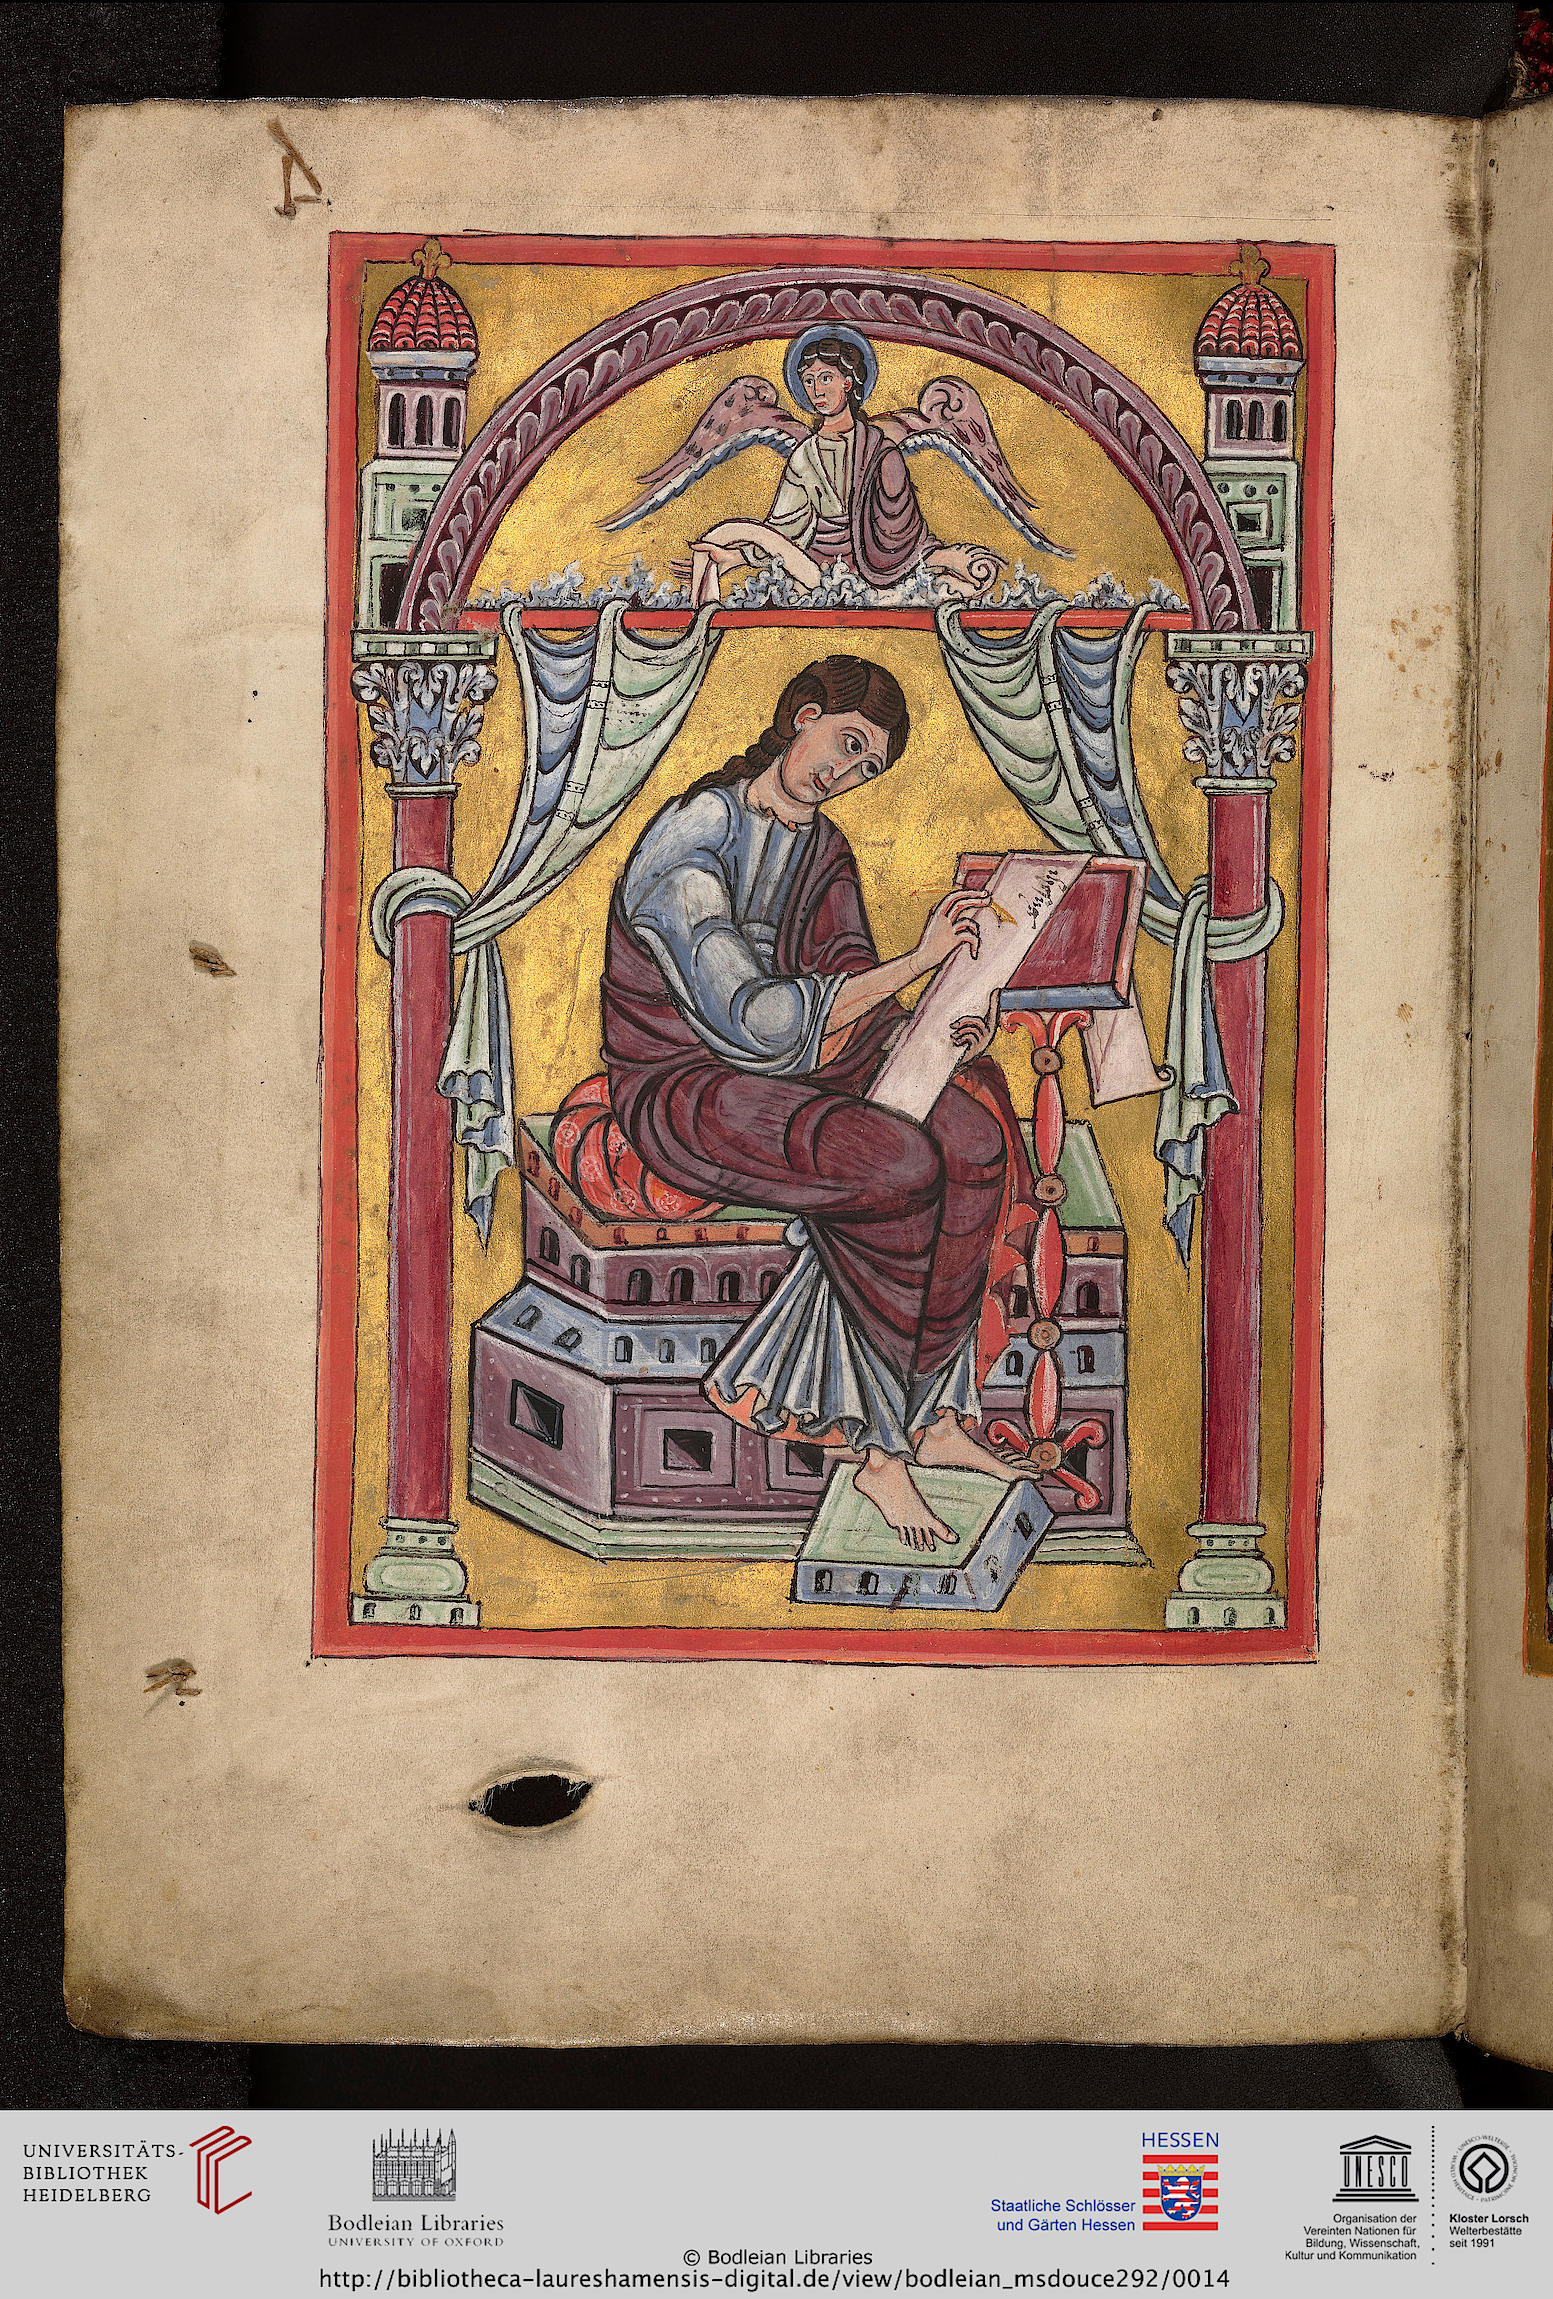 UNIVERSITÄTS-
BIBLIOTHEK
HEIDELBERG
Bodleian Libraries
UNIVERSITY OF OXFORD
HESSEN
Staatliche Schlösser
und Gärten Hessen
UNESCO
Organisation der
Vereinten Nationen für
Bildung, Wissenschaft,
Kultur und Kommunikation
Kloster Lorsch
Welterbestätte
seit 1991
© Bodleian Libraries
http://bibliotheca-laureshamensis-digital.de/view/bodleian_msdouce292/0014